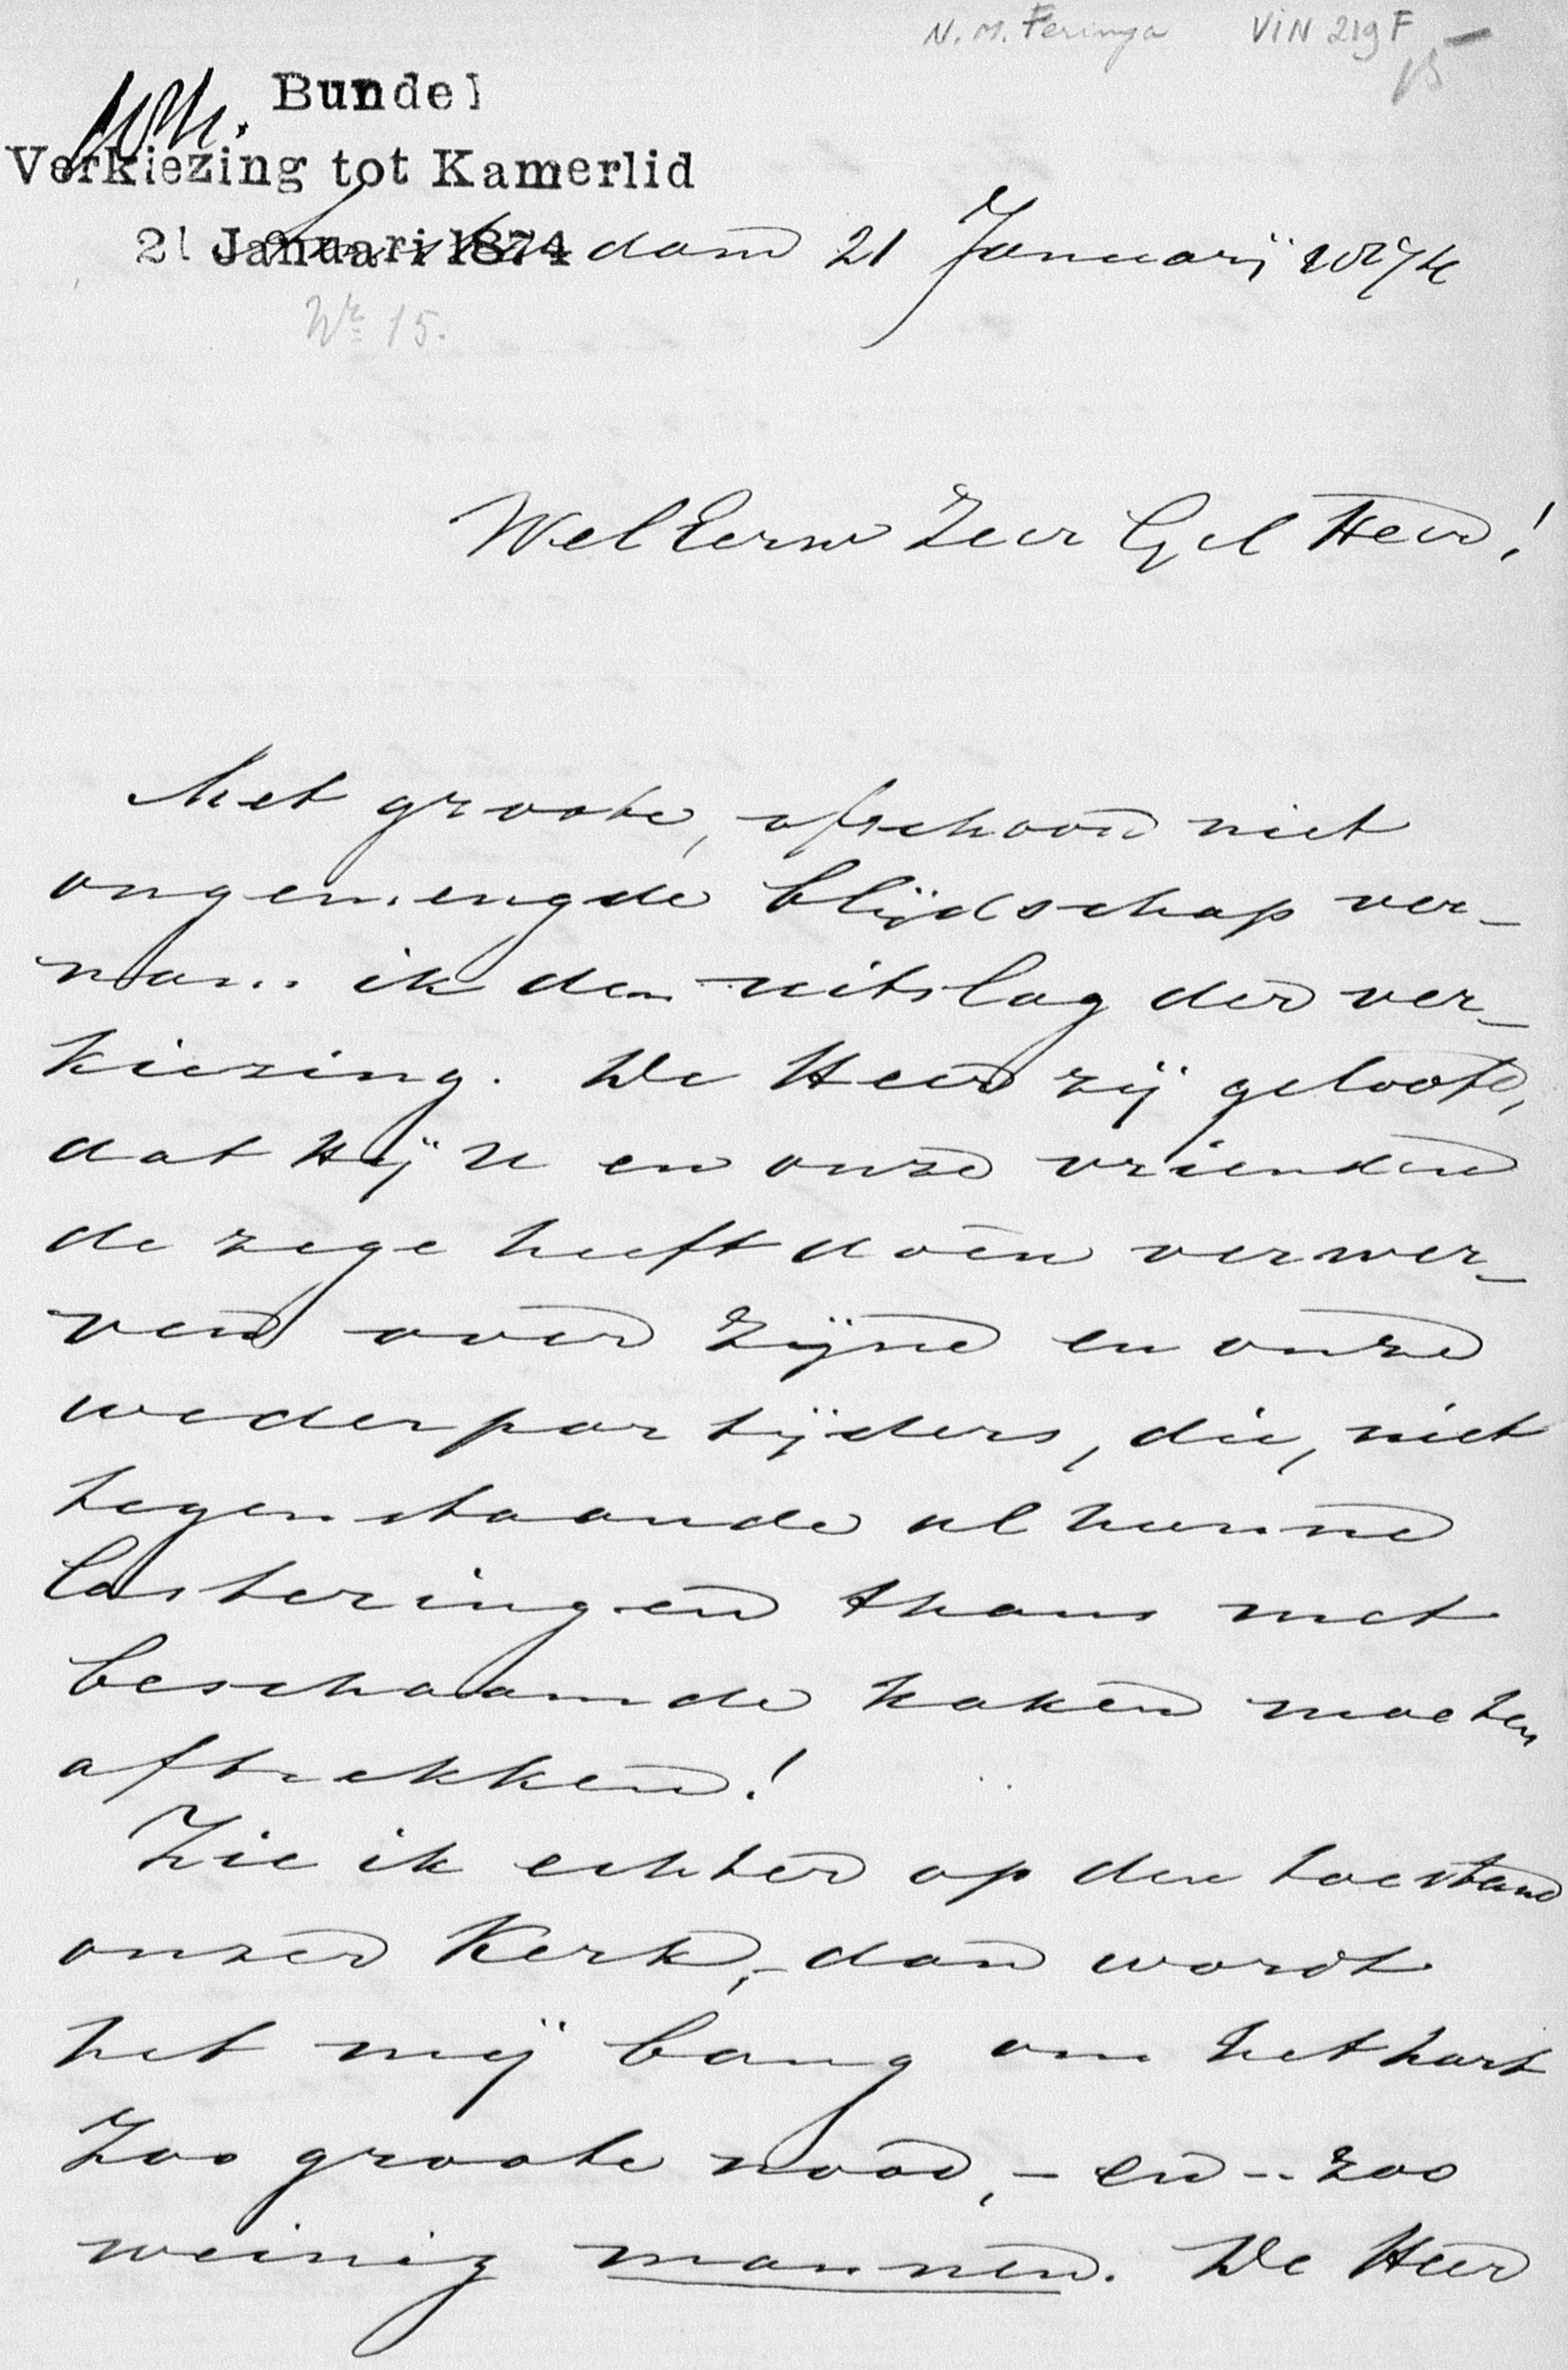 N. M. Feringa VIN 219 F
15
Bundel
Verkiezing tot Kamerlid
21 Januari 1874
dam 21 Januarij 1874
Nr 15.
WelEerw Zeer Gel Heer!
Met groote, ofschoon niet
ongemengde blijdschap ver-
nam ik den uitslag der ver-
kiezing. De Heer zij geloofd,
dat Hij U en onze vrienden
de zege heeft doen verwer-
ven over Zijne en onze
wederpartijders, die, niet
tegenstaande al hunne
lasteringen thans met
beschaamde kaken moeten
aftrekken!
Zie ik echter op den toestand
onzer Kerk, - dan wordt
het mij bang om het hart
Zoo groote nood, - en - zoo
weinig mannen. De Heer